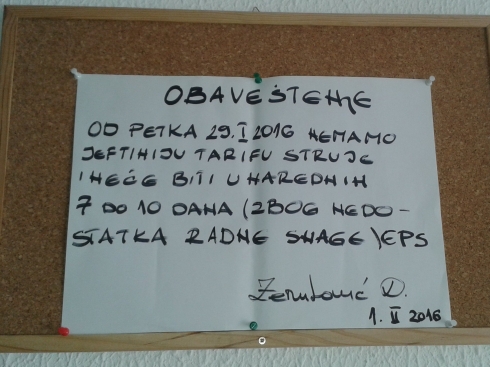 OBAVEŠTENJE
OD PETKA 29. I 2016 NEMAMO
JEFTINIJU TARIFU STRUJE
I NEĆE BITI U NAREDNIH
7 DO 10 DANA (ZBOG NEDO-
STATKA RADNE SNAGE) EPS
D.
1. II 2016